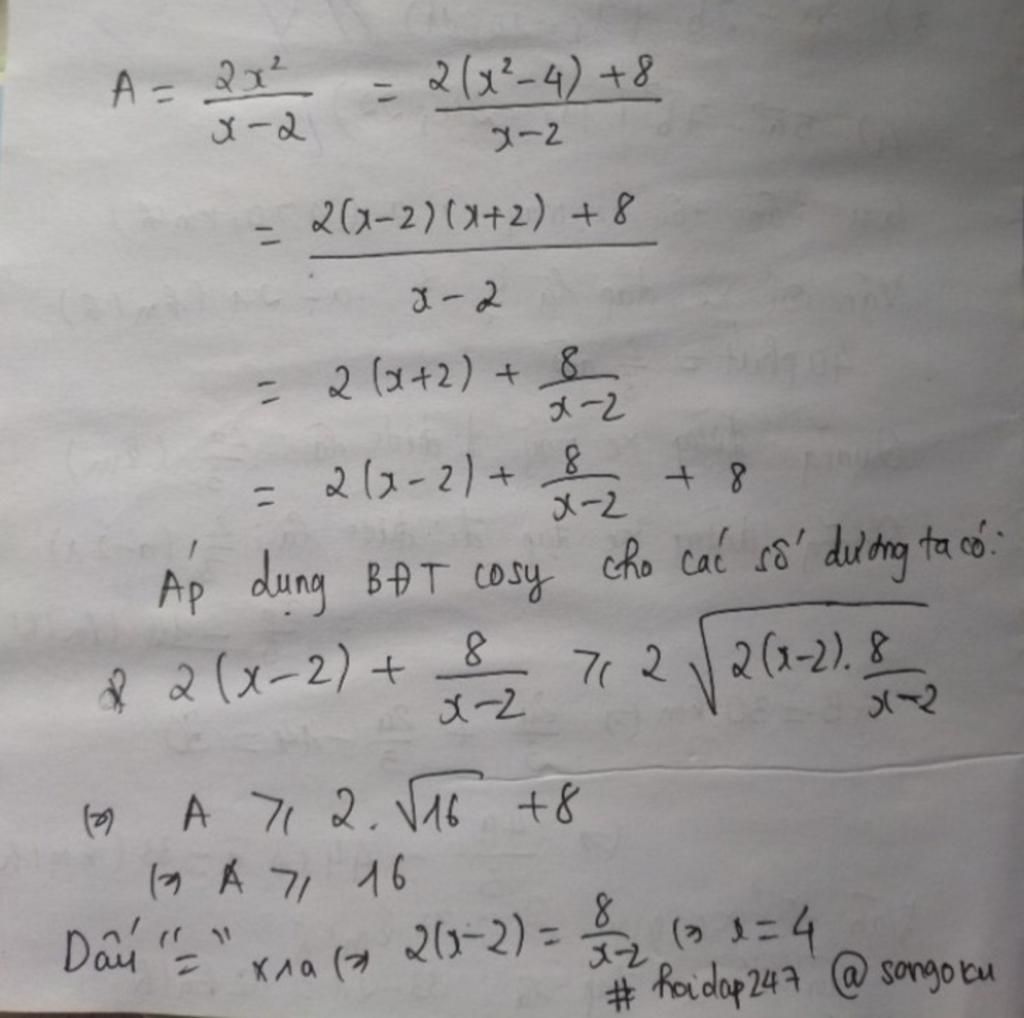 A = 2x²/(x-2) = (2(x²-4)+8)/(x-2)
= (2(x-2)(x+2)+8)/(x-2)
= 2(x+2) + 8/(x-2)
= 2(x-2) + 8/(x-2) + 8
Áp dụng BĐT cosy cho các số dương ta có:
2(x-2) + 8/(x-2) ≥ 2√(2(x-2).8/(x-2))
(=) A ≥ 2.√16 +8
(=) A ≥ 16
Dấu "=" xra (=) 2(x-2) = 8/(x-2) (=) x=4
# hoidap247 @ songoku